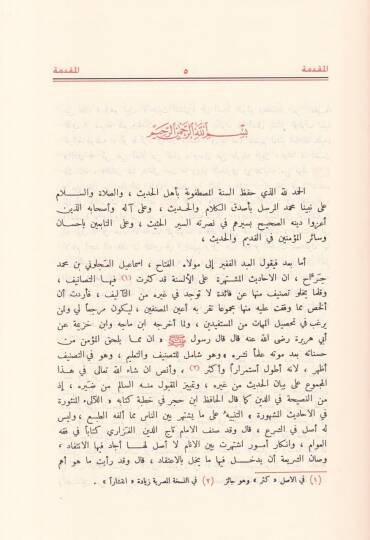 المقدمة ٥ المقدمة
بسم الله الرحمن الرحيم
الحمد لله الذي حفظ السنة المصطفوية بأهل الحديث ، والصلاة والسلام
على نبينا محمد المرسل بأصدق الكلام والحديث ، وعلى آله وأصحابه الذين
أحرزوا دينه الصحيح بسيرهم في نصرته السير الحثيث ، وعلى التابعين باحسان
وسائر المؤمنين في القديم والحديث ،
أما بعد فيقول العبد الفقير إلى مولاه الفتاح ، اسماعيل العجلوني بن محمد
جراح ، ان الاحاديث المشتهرة على الألسنة قد كثرت (١) فيها التصانيف ،
وقلما يخلو تصنيف منها عن فائدة لا توجد في غيره من التأليف ، فأردت أن
ألخص مما وقفت عليه منها مجموعا تقر به أعين المنصفين ، ليكون مرجعا لي ولمن
يرغب في تحصيل المهمات من المستفيدين ، ولما أخرجه ابن ماجه وابن خزيمة عن
أبي هريرة رضي الله عنه قال قال رسول ﷺ « ان مما يلحق المؤمن من
حسناته بعد موته علماً نشره » وهو شامل للتصنيف والتعليم ، وهو في التصنيف
أظهر ، لانه أطول استمراراً وأكثر (٢) ، وأنص ان شاء الله تعالى في هذا
المجموع على بيان الحديث من غيره ، وتمييز المقبول منه السالم من ضيره ، إذ
من النصيحة في الدين كما قال الحافظ ابن حجر في خطبة كتابه « اللآلىء المنثورة
في الاحاديث المشهورة ، التنبيه على ما يشتهر بين الناس مما ألفه الطبع ، وليس
له أصل في الشرع ، قال وقد صنف الامام تاج الدين الفزاري كتاباً في فقه
العوام ، وانكار أمور اشتهرت بين الانام لا أصل لها أجاد فيها الانتقاد ،
وصان الشريعة أن يدخل فيها ما يخل بالاعتقاد ، قال وقد رأيت ما هو أهم
(١) في الاصل « كثر » وهو جائز (٢) في النسخة المصرية زيادة « انتشاراً » .